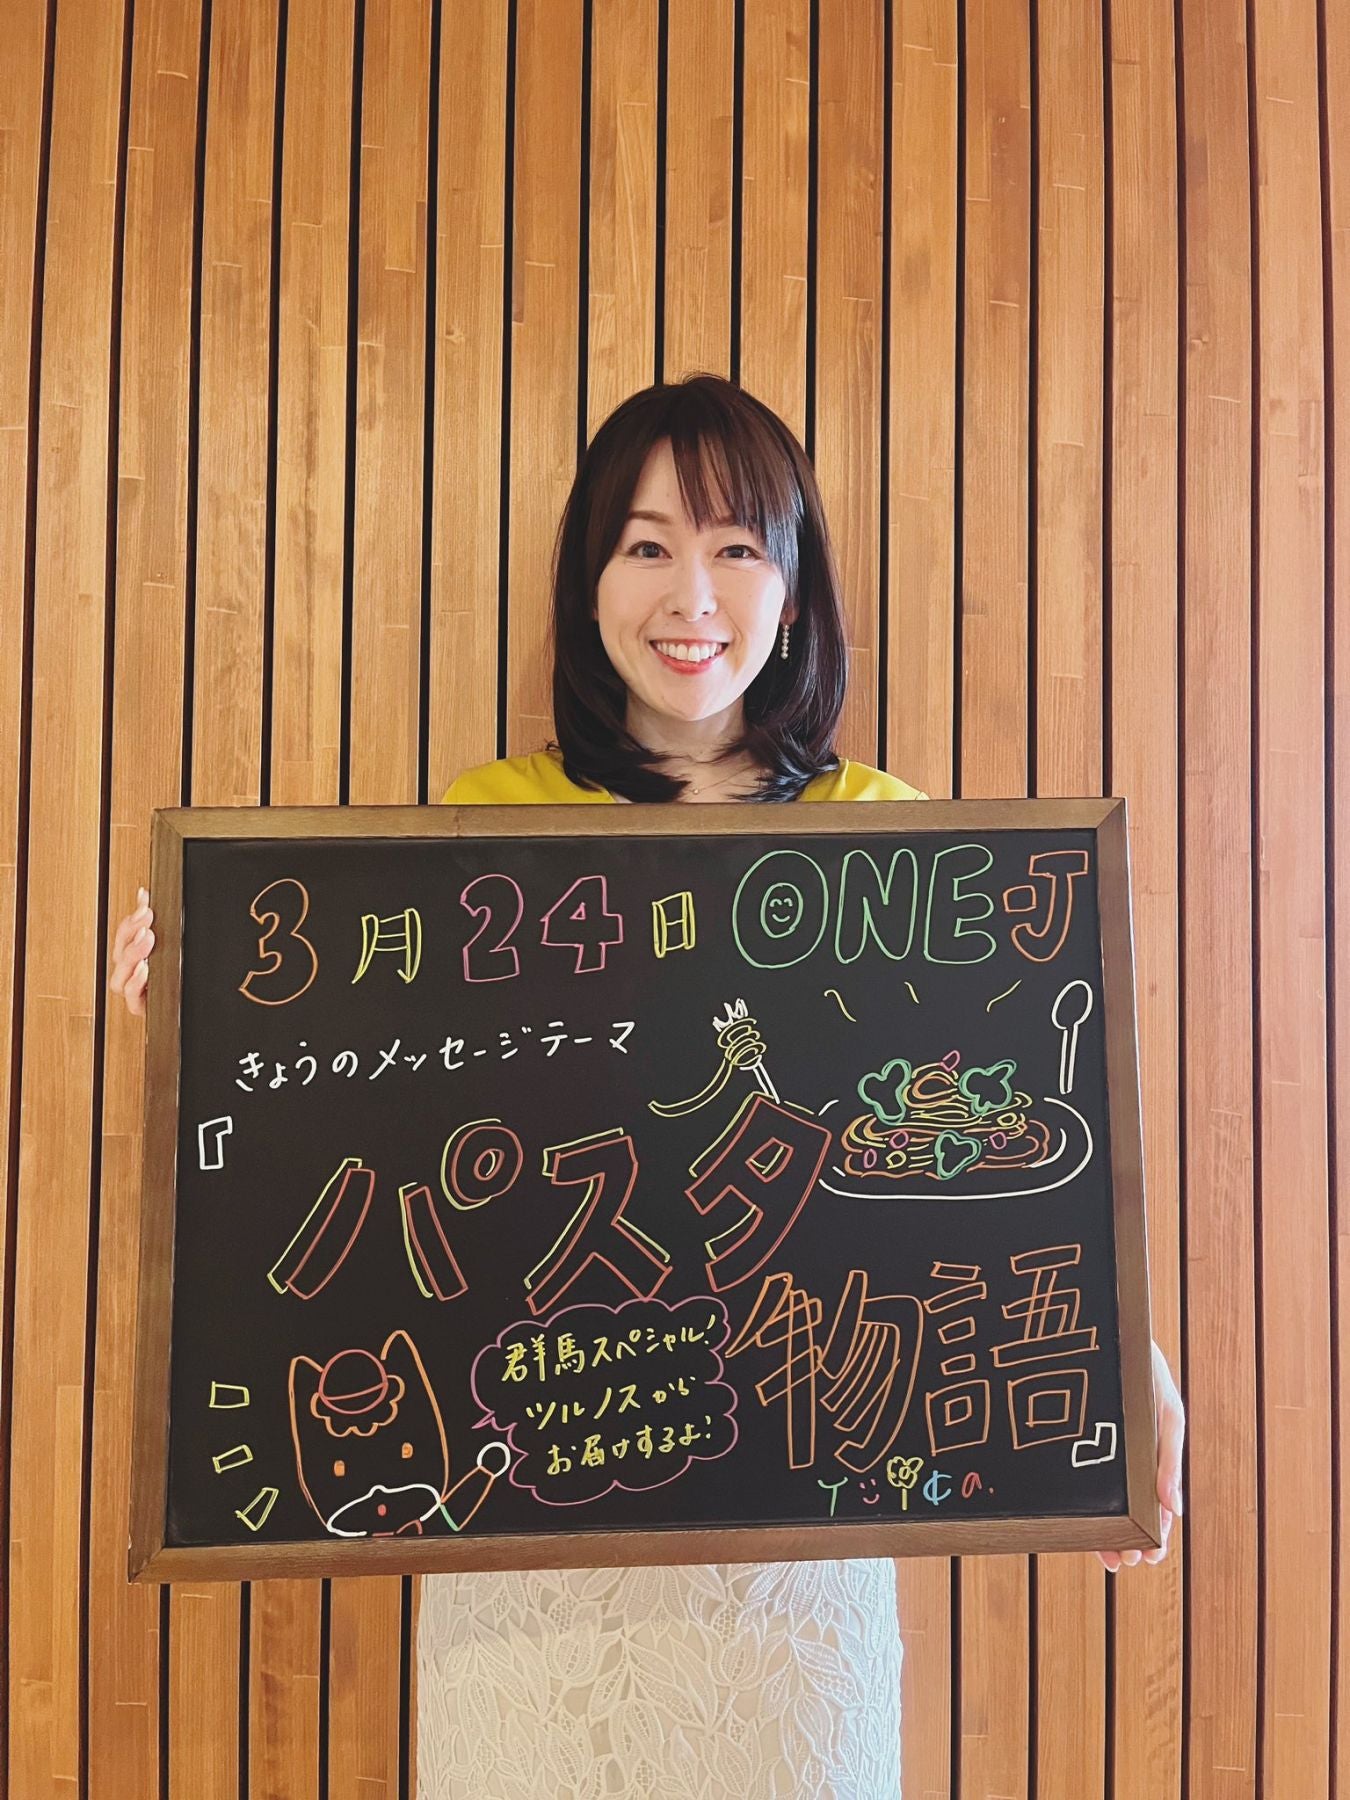 3月24日 ONE-J
きょうのメッセージテーマ
『パスタ
物語』
群馬スペシャル!
ツルノスから
お届けするよ!
Yuica.